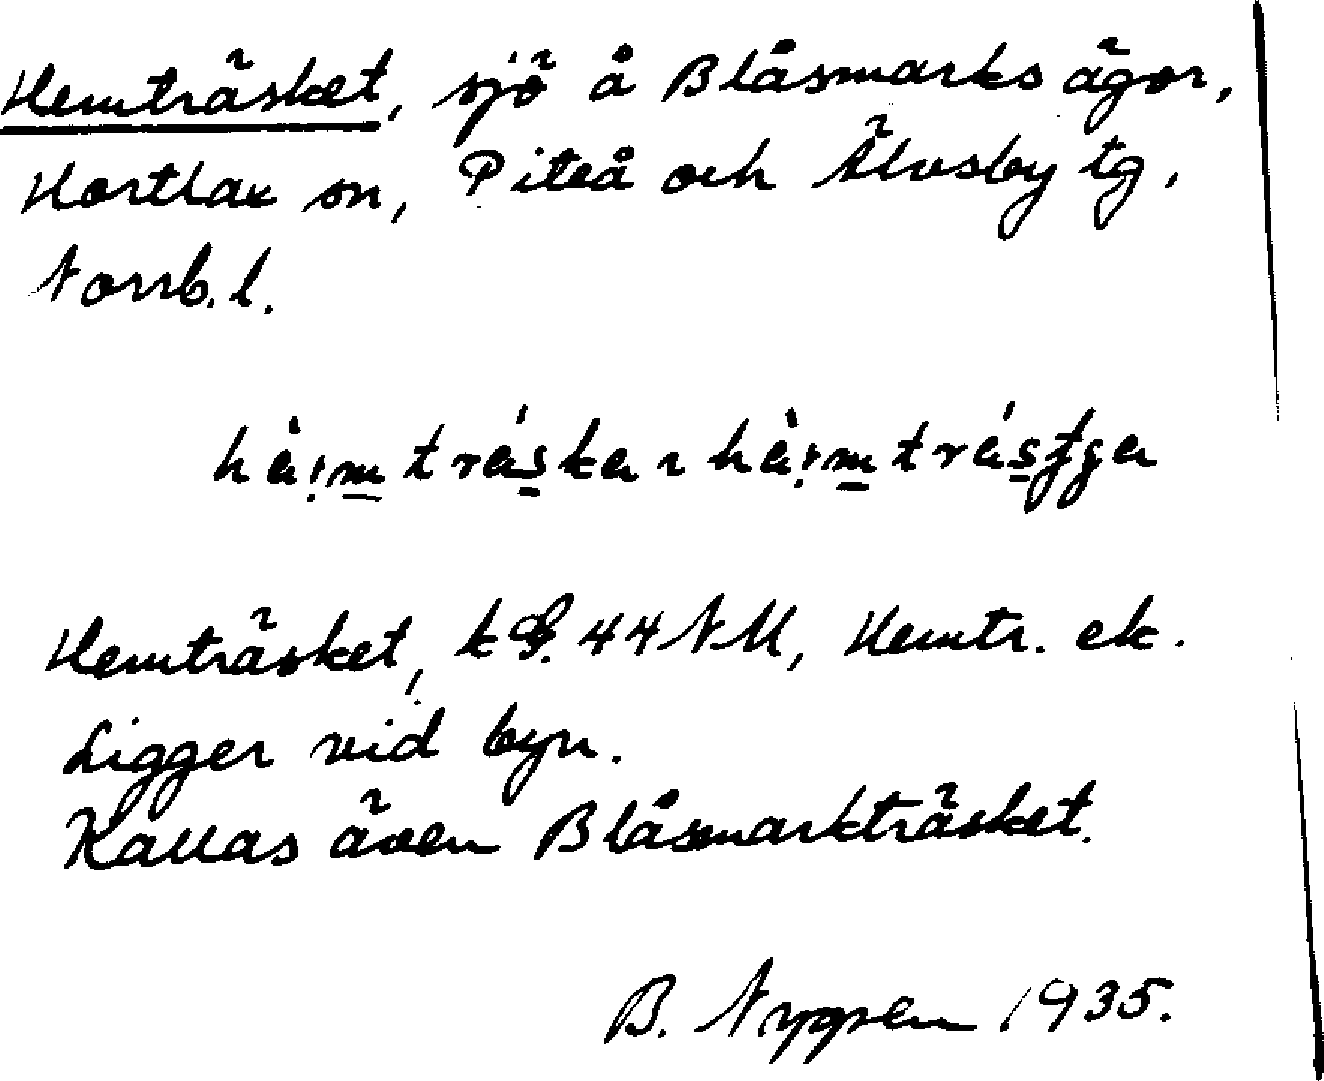 Hemträsket, sjö å Blåsmarks ägor,
Hortlax sn, Piteå och Älvsby tg,
Norrb. l.
hèi̯m tráska ı hèi̯m trásʃga
Hemträsket, k 44 NM, Hemtr. ek.
Ligger vid byn.
Kallas även Blåsmarkträsket.
B. Nygren 1935.